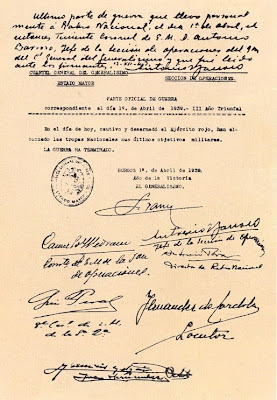 Ultimo parte de guerra que llevó personal
mente a Radio Nacional, el día 1º de abril, el
entonces Teniente Coronel de E.M. D. Antonio
Barroso, Jefe de la Sección de operaciones del
del Generalísimo y que fué leido
ante los firmantes.
Antonio Barroso
CUARTEL GENERAL DEL GENERALISIMO
SECCION DE OPERACIONES.
ESTADO MAYOR
PARTE OFICIAL DE GUERRA
correspondiente al día 1º. de Abril de 1939.- III Año Triunfal
En el día de hoy, cautivo y desarmado el Ejército rojo, han al-
canzado las tropas Nacionales sus últimos objetivos militares.
LA GUERRA HA TERMINADO.
BURGOS 1º. de Abril de 1939.
Año de la Victoria
EL GENERALISIMO,
Franco
Antonio Barroso
Jefe de la Sección de Operaciones
Comte de E.M. de la Son
de operaciones.
Director de Radio Nacional
Fernandez de Cordoba
Locutor
de la